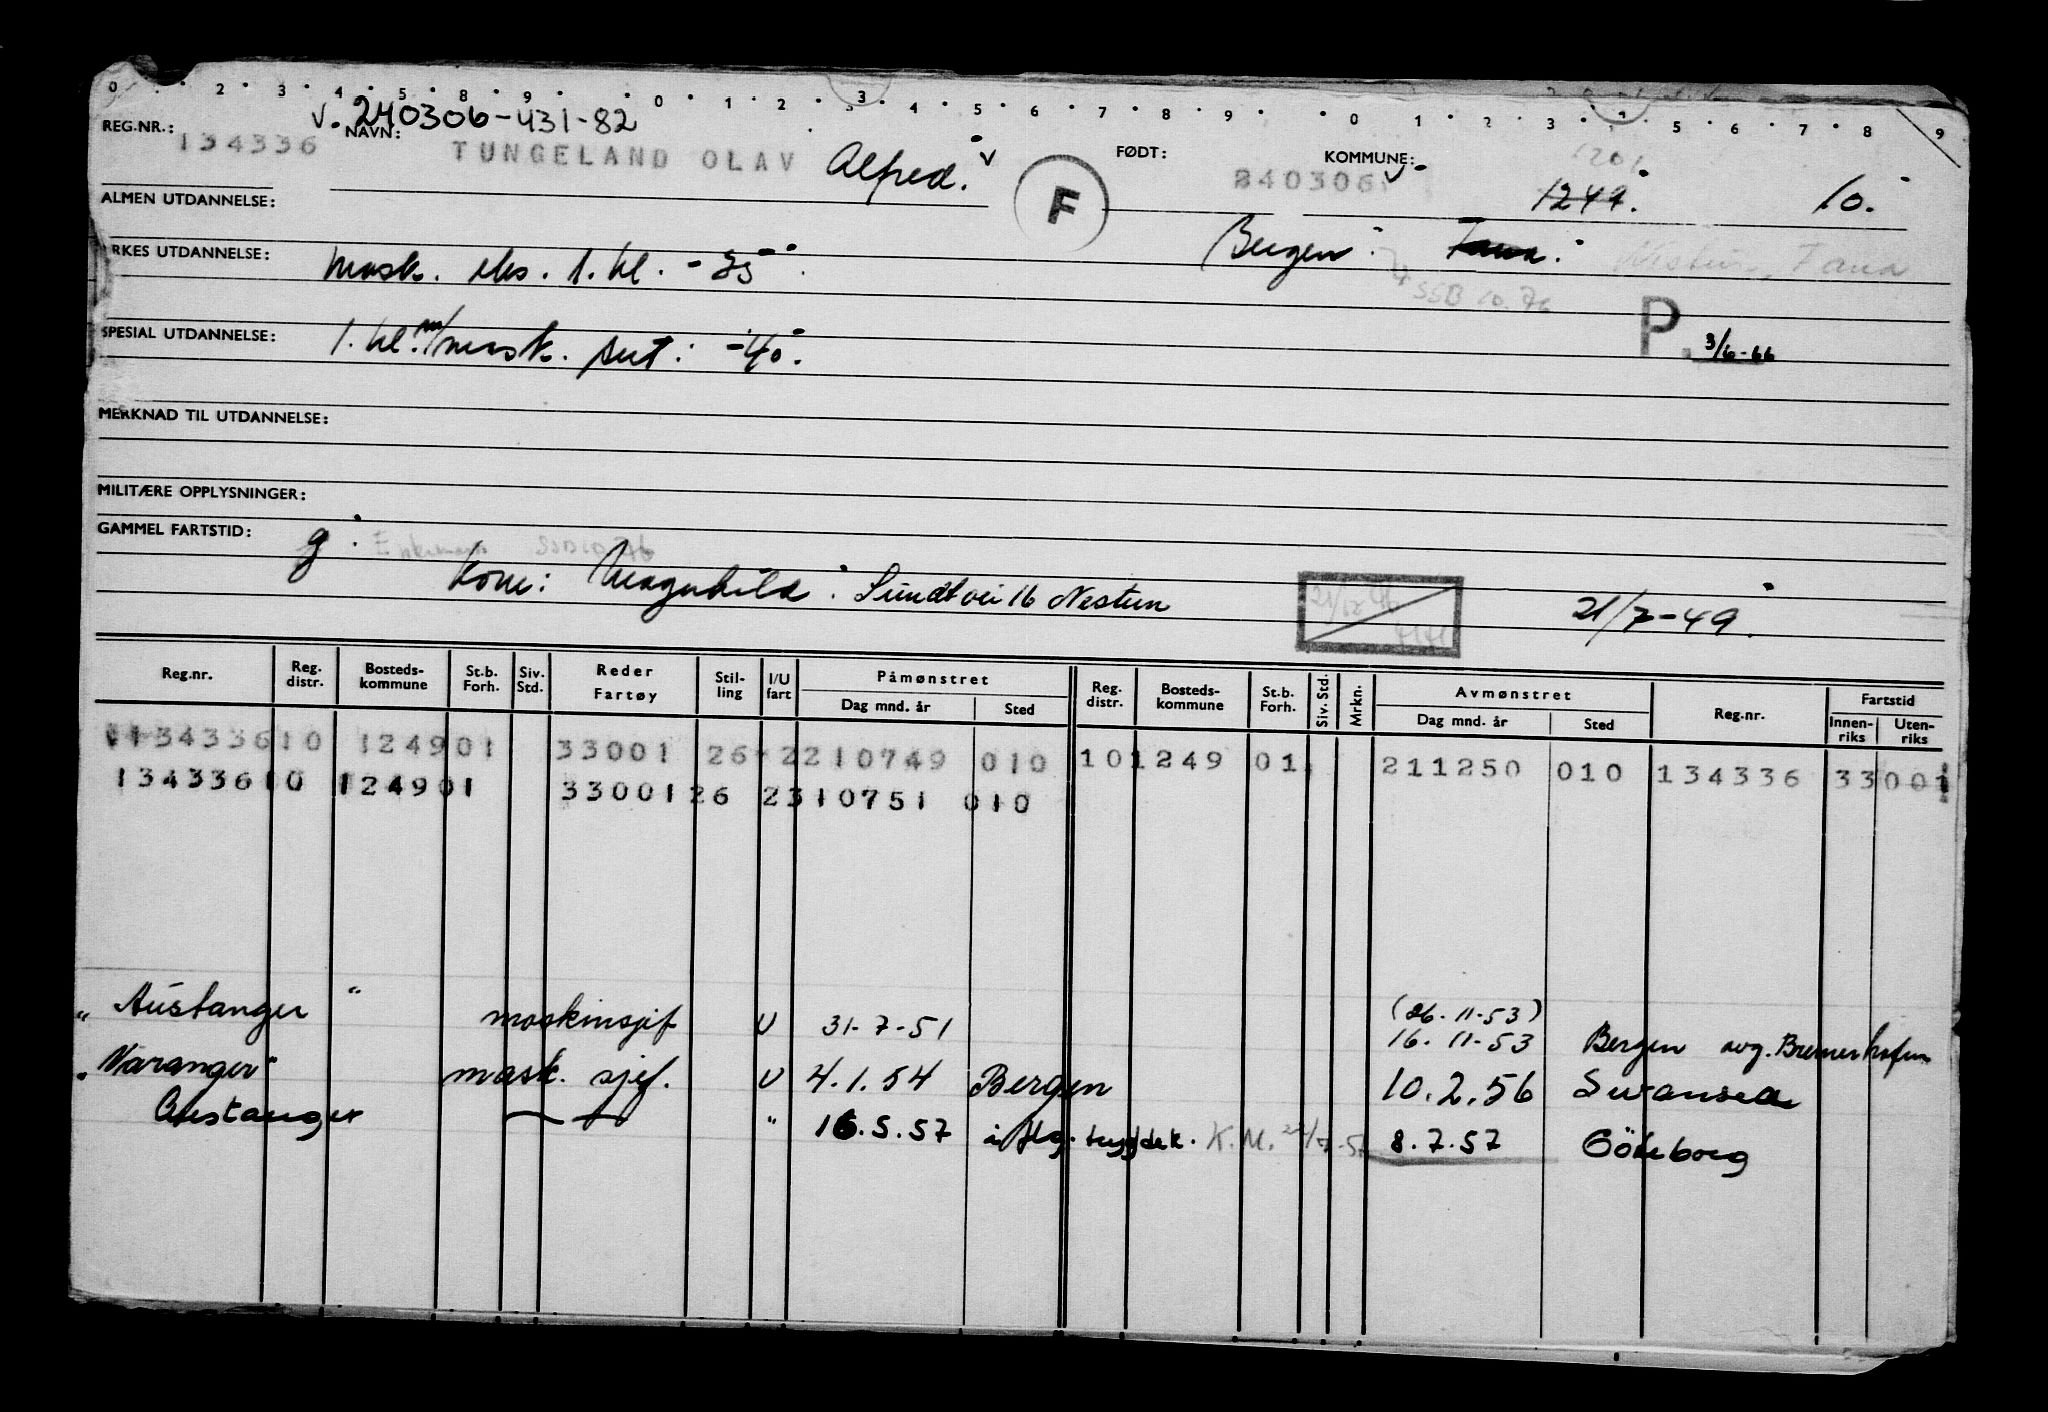 0 2 3 4 5 8 9 0 1 2 3 4 5 6 7 8 9 0 1 2 3 5 6 7 8 9
v. 240306-431-82
REG.NR.: 134336 NAVN: TUNGELAND OLAV Alfred. v F FØDT: 240306 KOMMUNE: 1201
1249. 10.
ALMEN UTDANNELSE:
Bergen. Fana. Nestun, Fana
YRKES UTDANNELSE: Mask. eks. 1. kl. - 35
SSB 10.76
SPESIAL UTDANNELSE: 1. kl. m/mask. sert: -40. P. 3/6-66
MERKNAD TIL UTDANNELSE:
MILITÆRE OPPLYSNINGER:
GAMMEL FARTSTID: g. Enkemann SSB 10 76
Kone: Magnhild. Sundtvei 16 Nestun 21/7-49.
Reg.nr. Reg. distr. Bosteds-kommune St.b. Forh. Siv. Std. Reder Fartøy Stil-ling I/U fart Påmønstret Dag mnd. år Sted Reg. distr. Bosteds-kommune St.b. Forh. Siv. Std. Mrkn. Avmønstret Dag mnd. år Sted Reg.nr. Fartstid Innen-riks Uten-riks
134336 10 1249 01 33001 26 2 210749 010 10 1249 01 211250 010 134336 33001
134336 10 1249 01 33001 26 2 310751 010
(26.11-53)
"Austanger" maskinsjef U 31-7-51 16.11-53 Bergen avg. Bremerhafen
"Varanger" mask. sjef. U 4.1.54 Bergen 10.2.56 Swansea
Austanger " 16.5.57 i flg. trygdek. K.M. 8.7.57 Göteborg